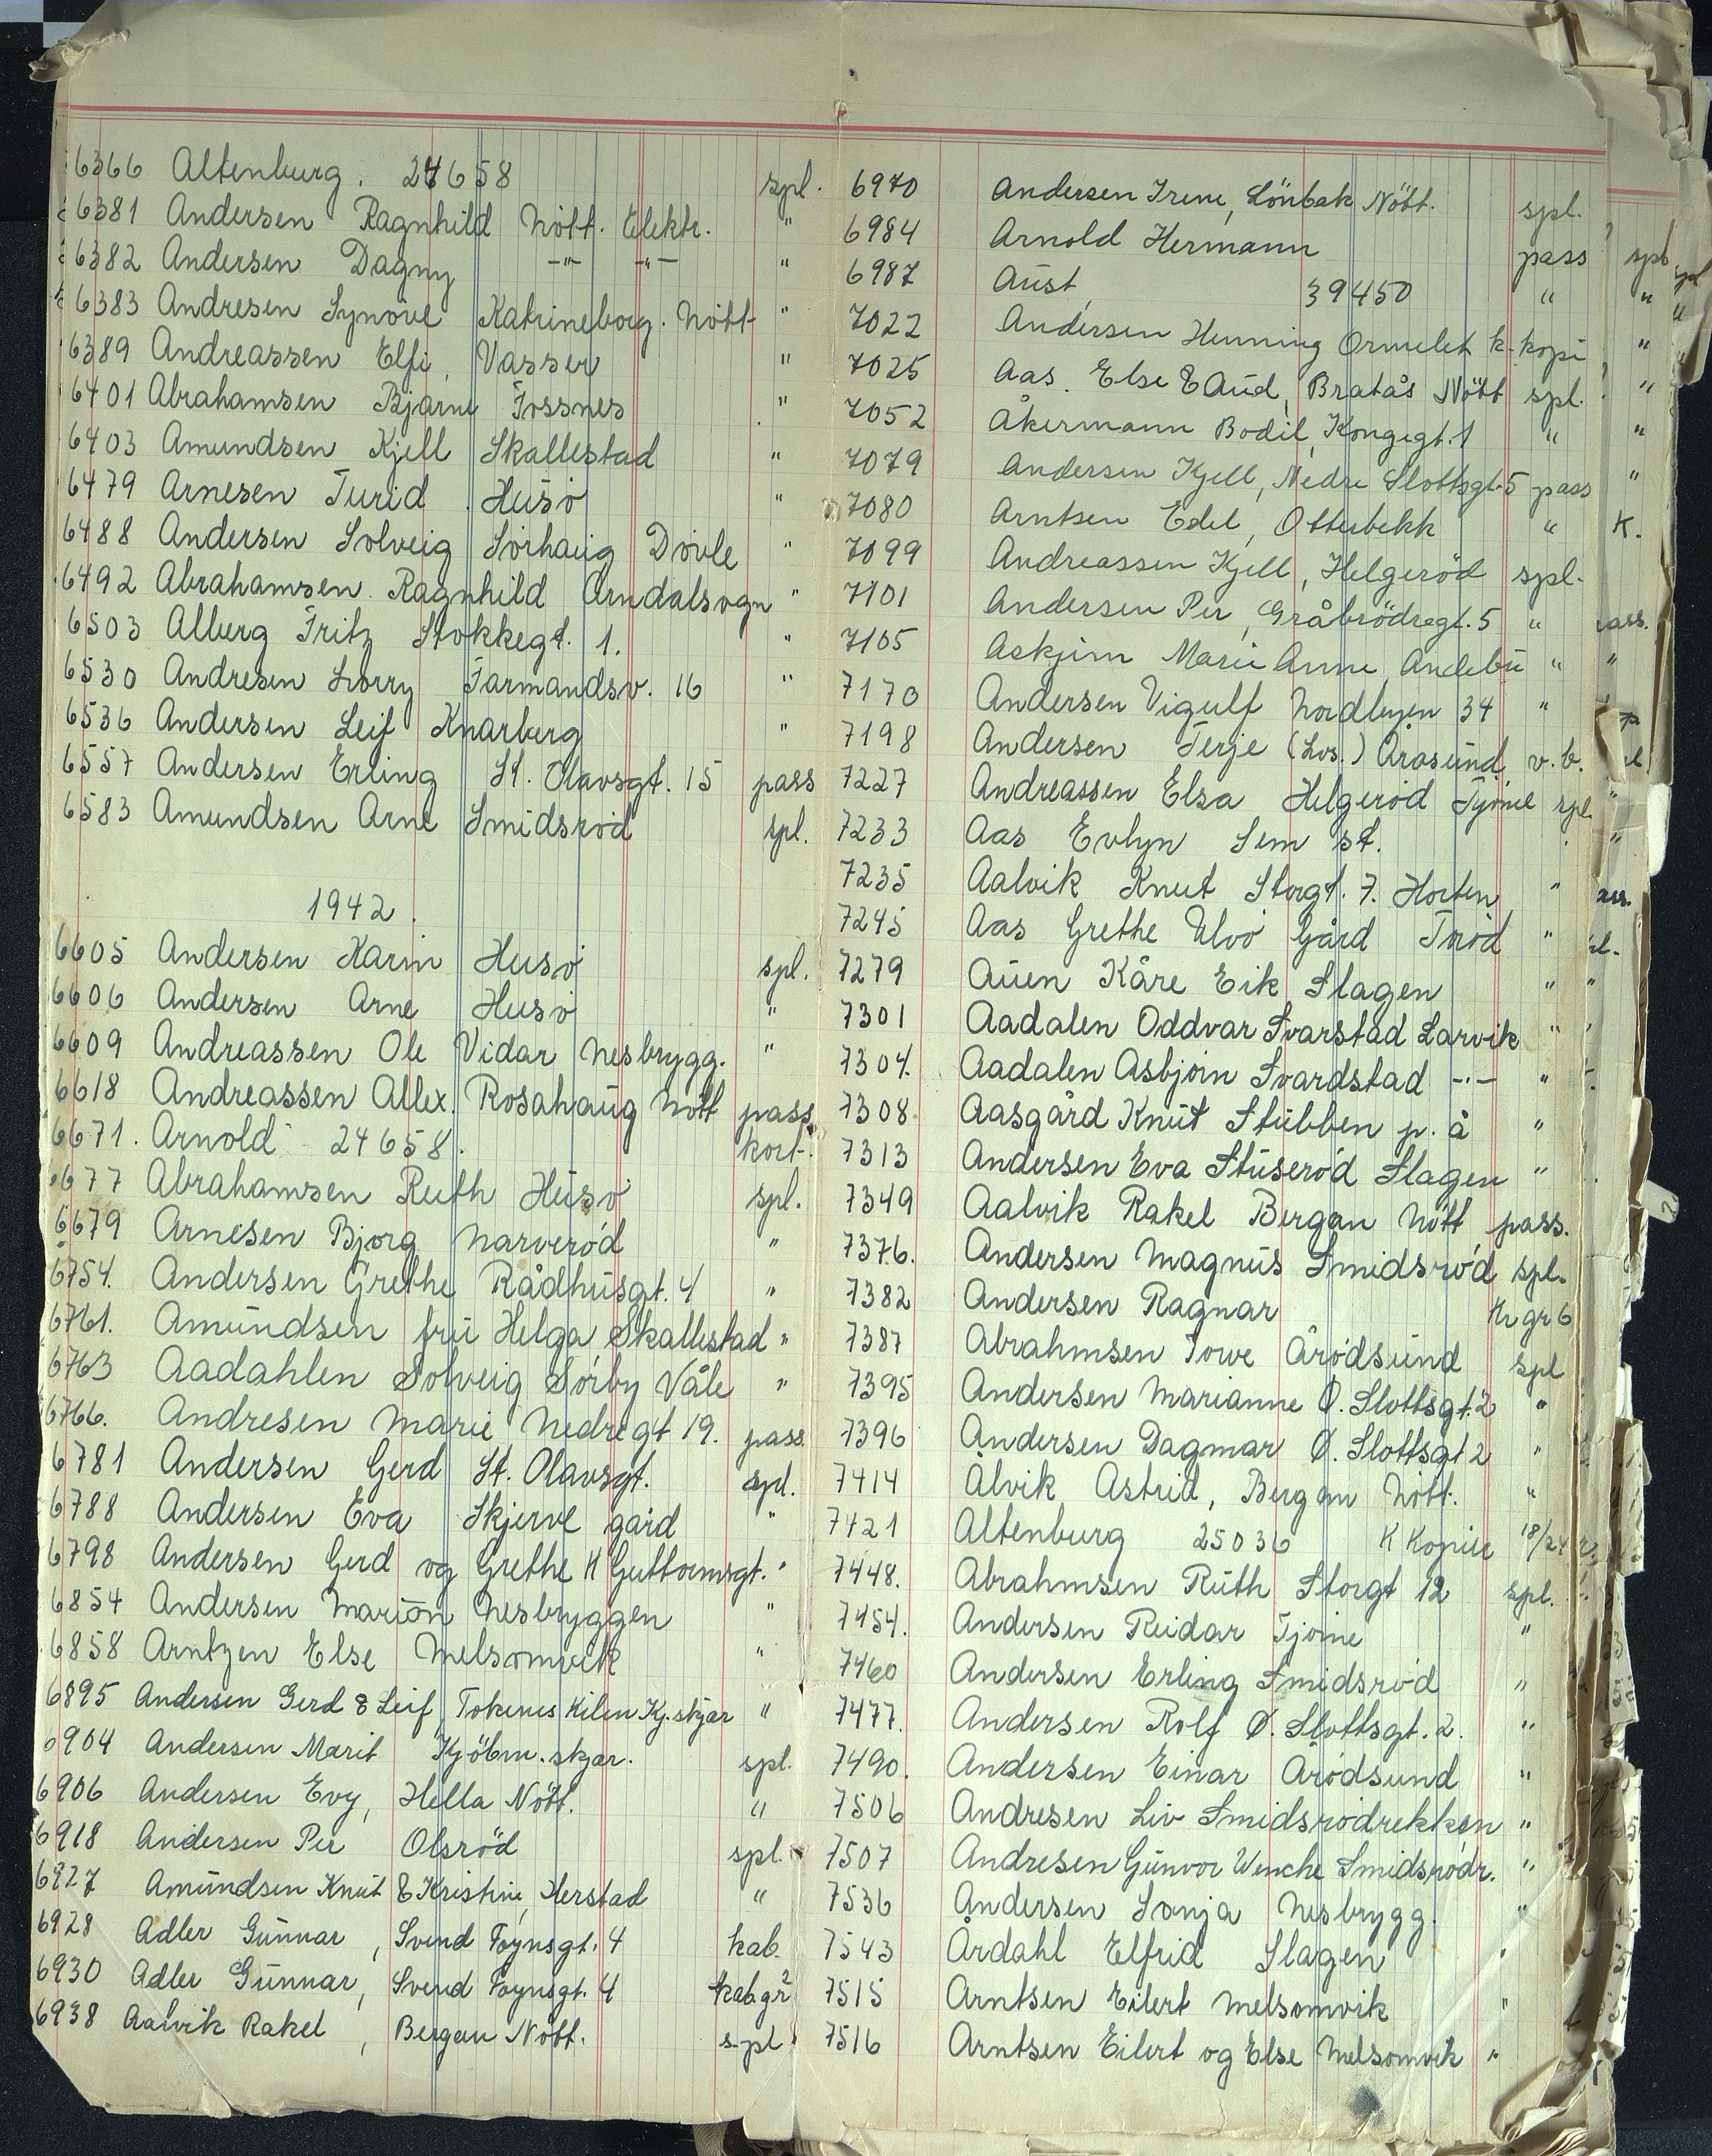 6366 Altenburg. 24658 spl.
6381 Andersen Ragnhild Nött. Elektr. "
6382 Andersen Dagny -"- -"- "
6383 Andresen Synöve Katrineborg. Nött. "
6389 Andreassen Elfi, Vasser "
6401 Abrahamsen Bjarne Fossnes "
6403 Amundsen Kjell Skallestad "
6479 Arnesen Turid Husö "
6488 Andersen Solveig Sörhaug Dövle "
6492 Abrahamsen Ragnhild Arndalsvgn "
6503 Alberg Fritz Stokkegt. 1. "
6530 Andresen Lorry Farmandsv. 16 "
6536 Andersen Leif Knarberg "
6557 Andersen Erling St. Olavsgt. 15 pass
6583 Amundsen Arne Smidsröd spl.
1942.
6605 Andersen Karin Husö spl.
6606 Andersen Arne Husö "
6609 Andreassen Ole Vidar Nesbrygg. "
6618 Andreassen Allex. Rosahaug Nött pass
6671. Arnold 24658. kort.
6677 Abrahamsen Ruth Husö spl.
6679 Arnesen Bjorg Narveröd "
6754. Andersen Grethe Rådhusgt. 4 "
6761. Amundsen fru Helga Skallestad "
6763 Aadahlen Solveig Sörby Våle "
6766. Andresen Marie Nedregt 19. pass.
6781 Andersen Gerd St. Olavsgt. spl.
6788 Andersen Eva Skjerve gård "
6798 Andersen Gerd og Grethe H Guttormsgt. "
6854 Andersen Marion Nesbryggen "
6858 Arntzen Else Melsomvik "
6895 Andersen Gerd & Leif, Tokenes Kilen Kj.skjær "
6904 Andersen Marit Kjöbm.skjær. spl.
6906 Andersen Evy, Hella Nött. "
6918 Andersen Per Olsröd spl.
6927 Amundsen Knut & Kristine, Herstad "
6928 Adler Gunnar, Svend Foynsgt. 4 kab.
6930 Adler Gunnar, Svend Foynsgt. 4 kab.gr 2
6938 Aalvik Rakel, Bergan Nött. spl.
6970 Andersen Irene, Lönbak Nött. spl.
6984 Arnold Hermann pass
6987 Aust, 39450 "
7022 Andersen Henning Ormelet k-kopi
7025 Aas. Else & Aud, Bratås Nött spl.
7052 Åkermann Bodil, Kongegt. 1 "
7079 Andersen Kjell, Nedre Slottsgt. 5 pass
7080 Arntsen Edel, Otterbekk "
7099 Andreassen Kjell, Helgeröd spl.
7101 Andersen Per, Gråbrödregt. 5 "
7105 Askjem Marie Anne, Andebu "
7170 Andersen Vigulf Nordbyen 34 "
7198 Andersen Terje (Los.) Årøsund v.b.
7227 Andreassen Elsa Helgeröd Tjöme spl.
7233 Aas Evlyn Sem st. "
7235 Aalvik Knut Storgt. 7. Horten "
7245 Aas Grethe Ulvö Gård Töröd "
7279 Auen Kåre Eik Slagen "
7301 Aadalen Oddvar Svarstad Larvik "
7304. Aadalen Asbjörn Svardstad -"- "
7308. Aasgård Knut Stubben p. å "
7313 Andersen Eva Stuseröd Slagen "
7349 Aalvik Rakel Bergan Nött pass.
7376. Andersen Magnus Smidsröd spl.
7382 Andersen Ragnar Kr gr 6
7387 Abrahmsen Tove Årödsund spl
7395 Andersen Marianne Ø. Slottsgt. 2 "
7396 Andersen Dagmar Ø. Slottsgt 2 "
7414 Ålvik Astrid, Bergan Nött. "
7421 Altenburg 25036 K Kopier 18/24
7448. Abrahmsen Ruth Storgt 12 spl.
7454. Andersen Reidar Tjöme "
7460 Andersen Erling Smidsröd "
7477. Andersen Rolf Ø. Slottsgt. 2. "
7490. Andersen Einar Årödsund "
7506 Andresen Liv Smidsrödrekken "
7507 Andresen Gunvor Wenche Smidsrödr. "
7536 Andersen Sonja Nesbrygg. "
7543 Årdahl Elfrid Slagen "
7515 Arntsen Eilert Melsomvik "
7516 Arntsen Eilert og Else Melsomvik "